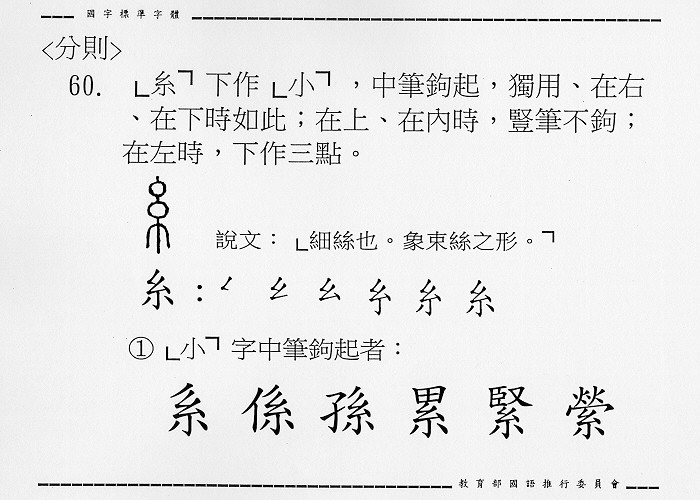 國字標準字體
<分則>
60. 「糸」下作「小」，中筆鉤起，獨用、在右
、在下時如此；在上、在內時，豎筆不鉤；
在左時，下作三點。
說文：「細絲也。象束絲之形。」
糸：
① 「小」字中筆鉤起者：
系 係 孫 累 緊 縈
教育部國語推行委員會